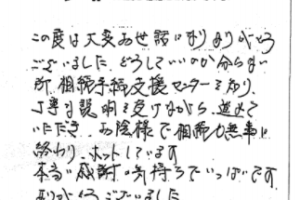 この度は大変お世話になりありがとう
ございました。どうしていいのか分からない
所、相続手続支援センターを知り、
丁寧な説明を受けながら、進めて
いただき、お陰様で相続も無事に
終わり、ホットしています
本当に感謝の気持ちでいっぱいです
ありがとうございました